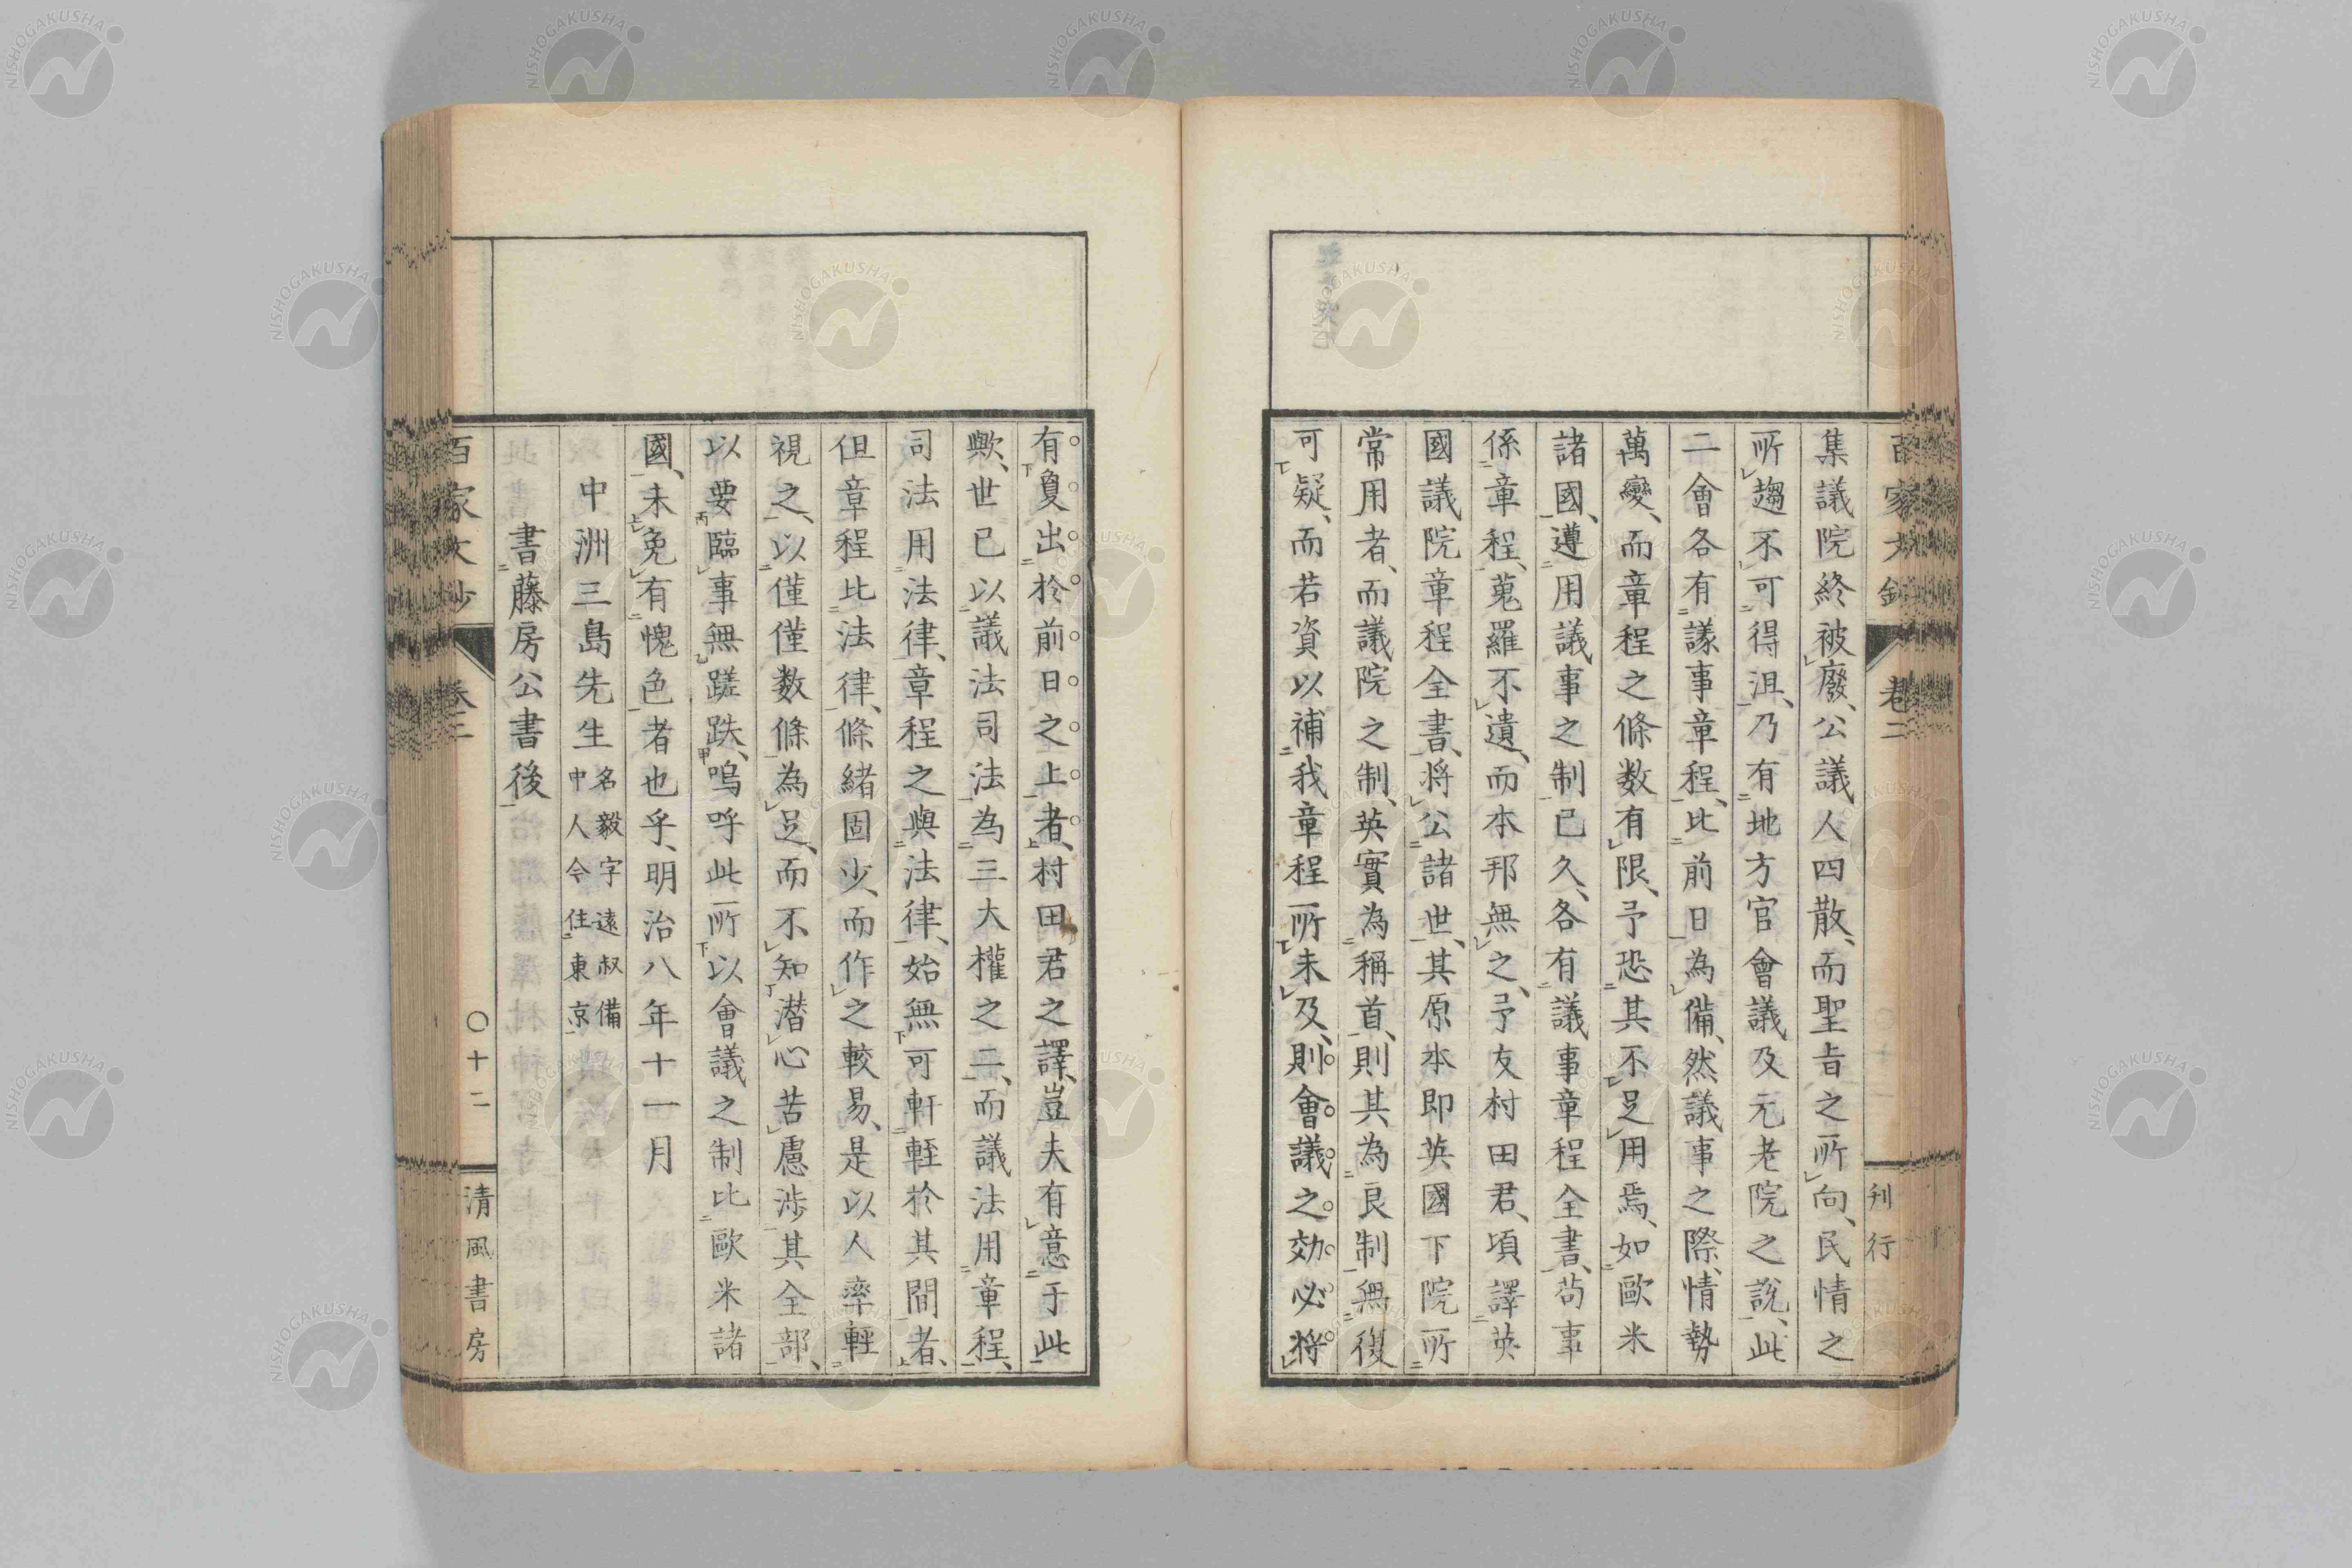 集議院終被廢、公議人四散、而聖旨之所向、民情之
所趨不可得沮、乃有地方官會議及元老院之説、此
二會各有議事章程、比前日為備、然議事之際、情勢
萬變、而章程之條数有限、予恐其不足用焉、如歐米
諸國、遵用議事之制已久、各有議事章程全書、苟事
係章程、蒐羅不遺、而本邦無之、予友村田君、頃譯英
國議院章程全書、將公諸世、其原本即英國下院所
常用者、而議院之制、英實為稱首、則其為良制無復
可疑、而若資以補我章程所未及、則會議之効必將
有夐出於前日之上者、村田君之譯、豈夫有意于此
歟、世已以議法司法為三大權之二、而議法用章程、
司法用法律、章程之與法律、始無可軒輊於其間者、
但章程比法律、條緒固少、而作之較易、是以人率輕
視之、以僅僅数條為足、而不知潜心苦慮涉其全部、
以要臨事無蹉跌、嗚呼此所以會議之制比歐米諸
國、未免有愧色者也乎、明治八年十一月
中洲三島先生 名毅字遠叔備中人今住東京
書藤房公書後
百家文鈔 卷二
刊行
百家文鈔 卷二 〇十二 清風書房